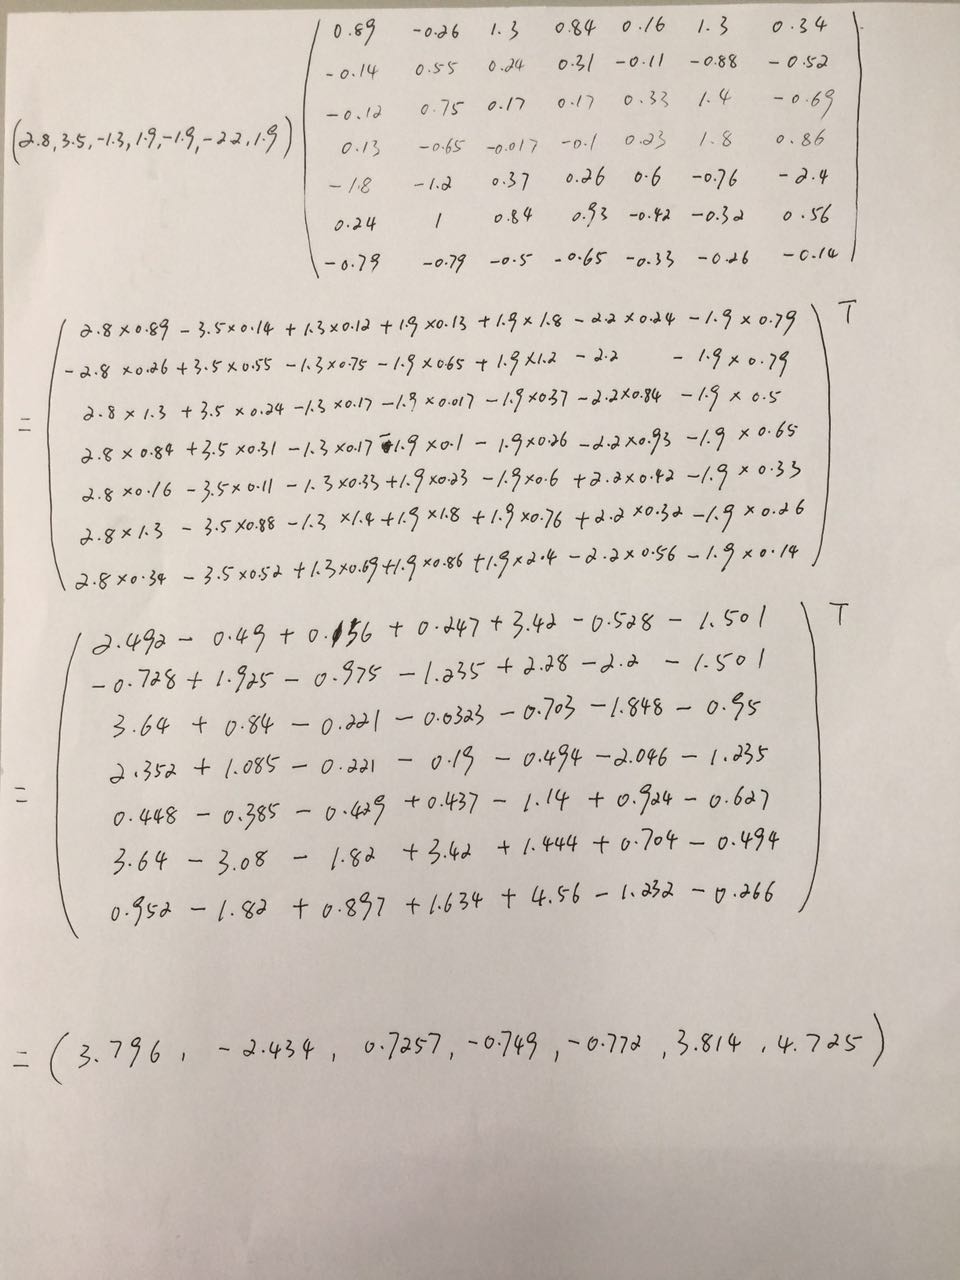 0.89 -0.26 1.3 0.84 0.16 1.3 0.34
-0.14 0.55 0.24 0.31 -0.11 -0.88 -0.52
-0.12 0.75 0.17 0.17 0.33 1.4 -0.69
(2.8, 3.5, -1.3, 1.9, -1.9, -2.2, 1.9) 0.13 -0.65 -0.017 -0.1 0.23 1.8 0.86
-1.8 -1.2 0.37 0.26 0.6 -0.76 -2.4
0.24 1 0.84 0.93 -0.42 -0.32 0.56
-0.79 -0.79 -0.5 -0.65 -0.33 -0.26 -0.14
2.8×0.89 - 3.5×0.14 + 1.3×0.12 + 1.9×0.13 + 1.9×1.8 - 2.2×0.24 - 1.9×0.79 T
-2.8×0.26 + 3.5×0.55 - 1.3×0.75 - 1.9×0.65 + 1.9×1.2 - 2.2 - 1.9×0.79
= 2.8×1.3 + 3.5×0.24 - 1.3×0.17 - 1.9×0.017 - 1.9×0.37 - 2.2×0.84 - 1.9×0.5
2.8×0.84 + 3.5×0.31 - 1.3×0.17 - 1.9×0.1 - 1.9×0.26 - 2.2×0.93 - 1.9×0.65
2.8×0.16 - 3.5×0.11 - 1.3×0.33 + 1.9×0.23 - 1.9×0.6 + 2.2×0.42 - 1.9×0.33
2.8×1.3 - 3.5×0.88 - 1.3×1.4 + 1.9×1.8 + 1.9×0.76 + 2.2×0.32 - 1.9×0.26
2.8×0.34 - 3.5×0.52 + 1.3×0.69 + 1.9×0.86 + 1.9×2.4 - 2.2×0.56 - 1.9×0.14
2.492 - 0.49 + 0.156 + 0.247 + 3.42 - 0.528 - 1.501 T
-0.728 + 1.925 - 0.975 - 1.235 + 2.28 - 2.2 - 1.501
3.64 + 0.84 - 0.221 - 0.0323 - 0.703 - 1.848 - 0.95
= 2.352 + 1.085 - 0.221 - 0.19 - 0.494 - 2.046 - 1.235
0.448 - 0.385 - 0.429 + 0.437 - 1.14 + 0.924 - 0.627
3.64 - 3.08 - 1.82 + 3.42 + 1.444 + 0.704 - 0.494
0.952 - 1.82 + 0.897 + 1.634 + 4.56 - 1.232 - 0.266
= (3.796, -2.434, 0.7257, -0.749, -0.772, 3.814, 4.725)